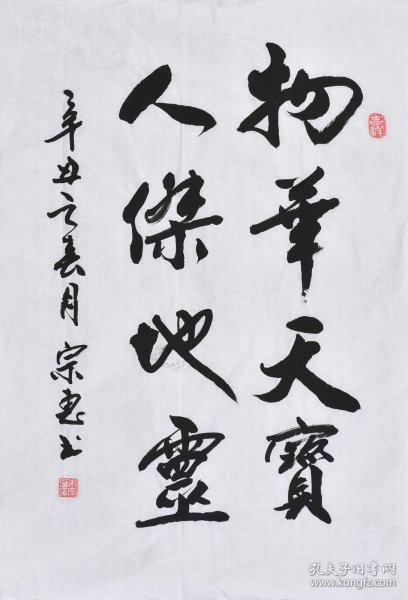 物華天寶
人傑地靈
辛丑之春月宗惠书
吉祥
孔夫子旧书网